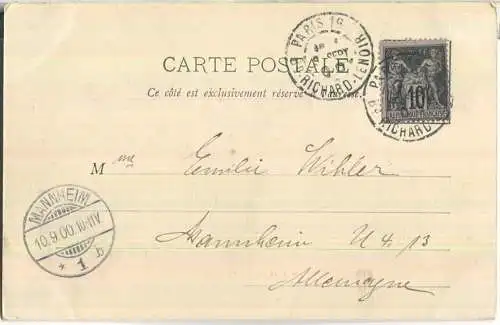 PARIS 19
SEPT
RICHARD-LENOIR
CARTE POSTALE
Ce côté est exclusivement réservé
10
RICHARD
Mme Emilie Wihler
MANNHEIM
10.9.00.
1 b
Mannheim U 4. 13
Allemagne